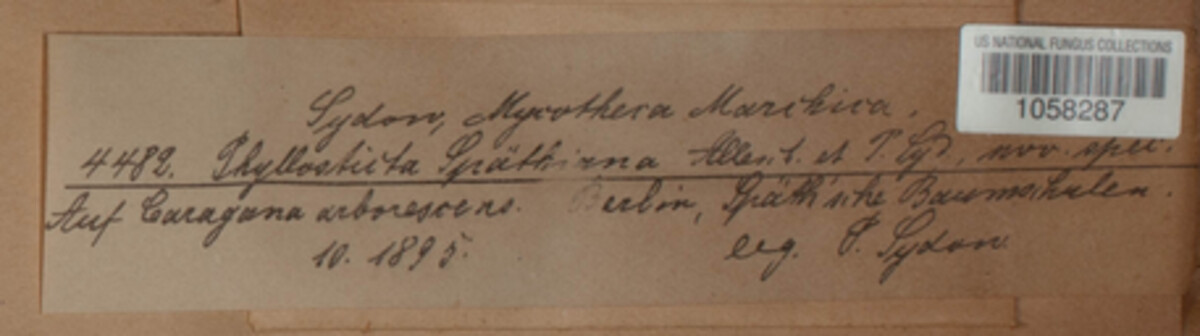 US NATIONAL FUNGUS COLLECTIONS
1058287
Sydow, Mycotheca Marchica.
4482. Phyllosticta Späthiana Allesch. et P. Syd., nov. spec.
Auf Caragana arborescens. Berlin, Späth'sche Baumschulen.
10. 1895. leg. P. Sydow